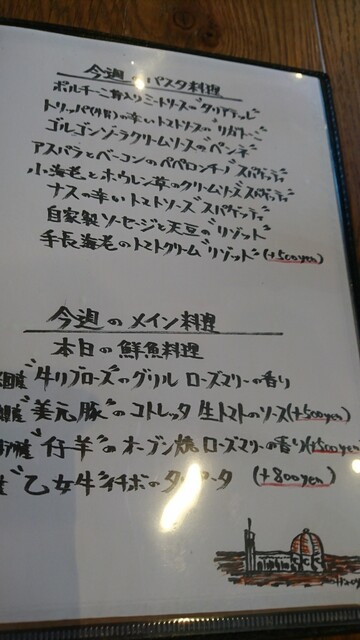 今週のパスタ料理
ポルチーニ茸入りミートソースの"タリアテッレ"
トリッパ(牛胃)の辛いトマトソースの"リガトーニ"
ゴルゴンゾーラクリームソースの"ペンネ"
アスパラとベーコンのペペロンチーノ"スパゲッティ"
小海老とホウレン草のクリームソース"スパゲッティ"
ナスの辛いトマトソース"スパゲッティ"
自家製ソーセージと天豆の"リゾット"
手長海老のトマトクリーム"リゾット"(+500yen)
今週のメイン料理
本日の鮮魚料理
"牛リブロース"のグリル ローズマリーの香り
産"美元豚"のコトレッタ 生トマトのソース(+500yen)
産"仔羊"のオーブン焼 ローズマリーの香り(+500yen)
産"乙女牛"イチボのタリアータ (+800yen)